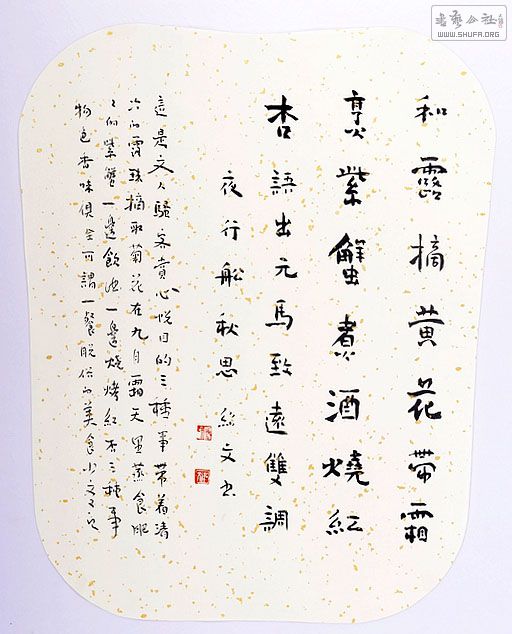 和露摘黄花帶霜
烹紫蟹煮酒燒紅
杏 語出元馬致遠雙調
夜行船秋思 文书
這是文人騷客賞心悦目的三種事帶着清
冷的露珠摘取菊花在九月霜天里蒸食肥
々的紫蟹一邊飲酒一邊燒烤紅杏三種事
物色香味俱全可謂一餐脱俗的美食
書藝公社
WWW.SHUFA.ORG